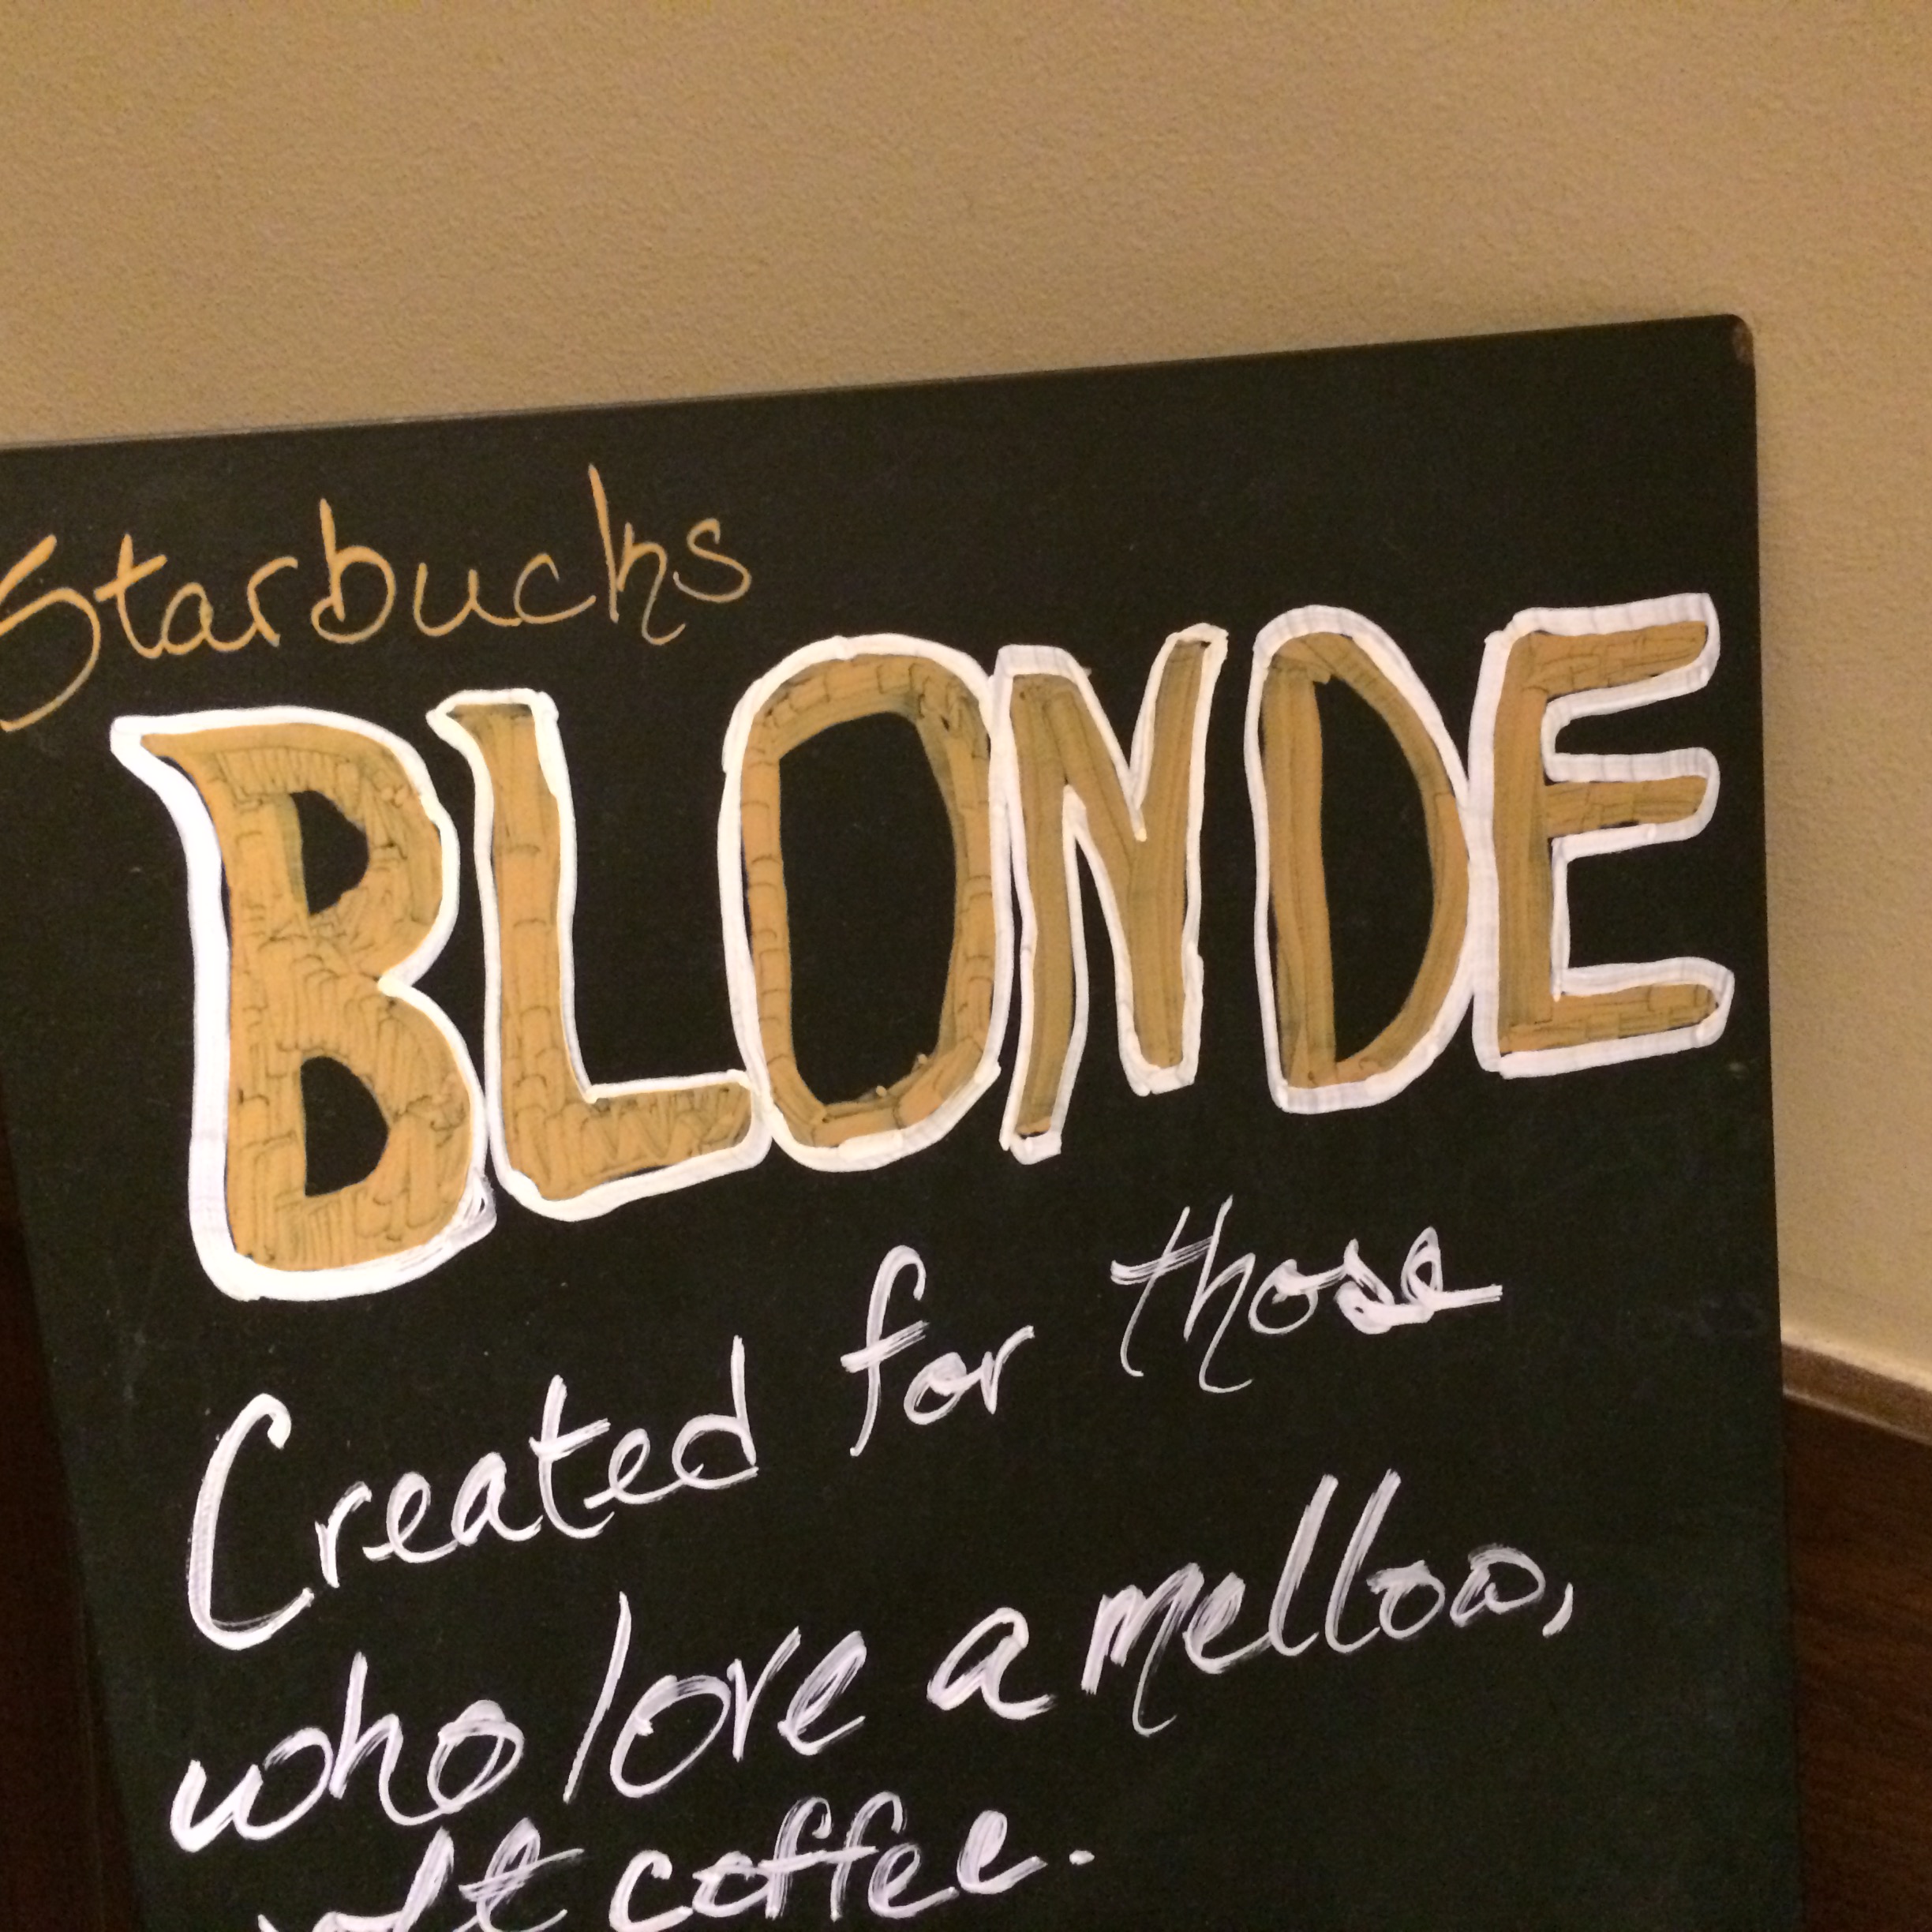 Starbucks
BLONDE
Created for those
who love a mellow,
soft coffee.